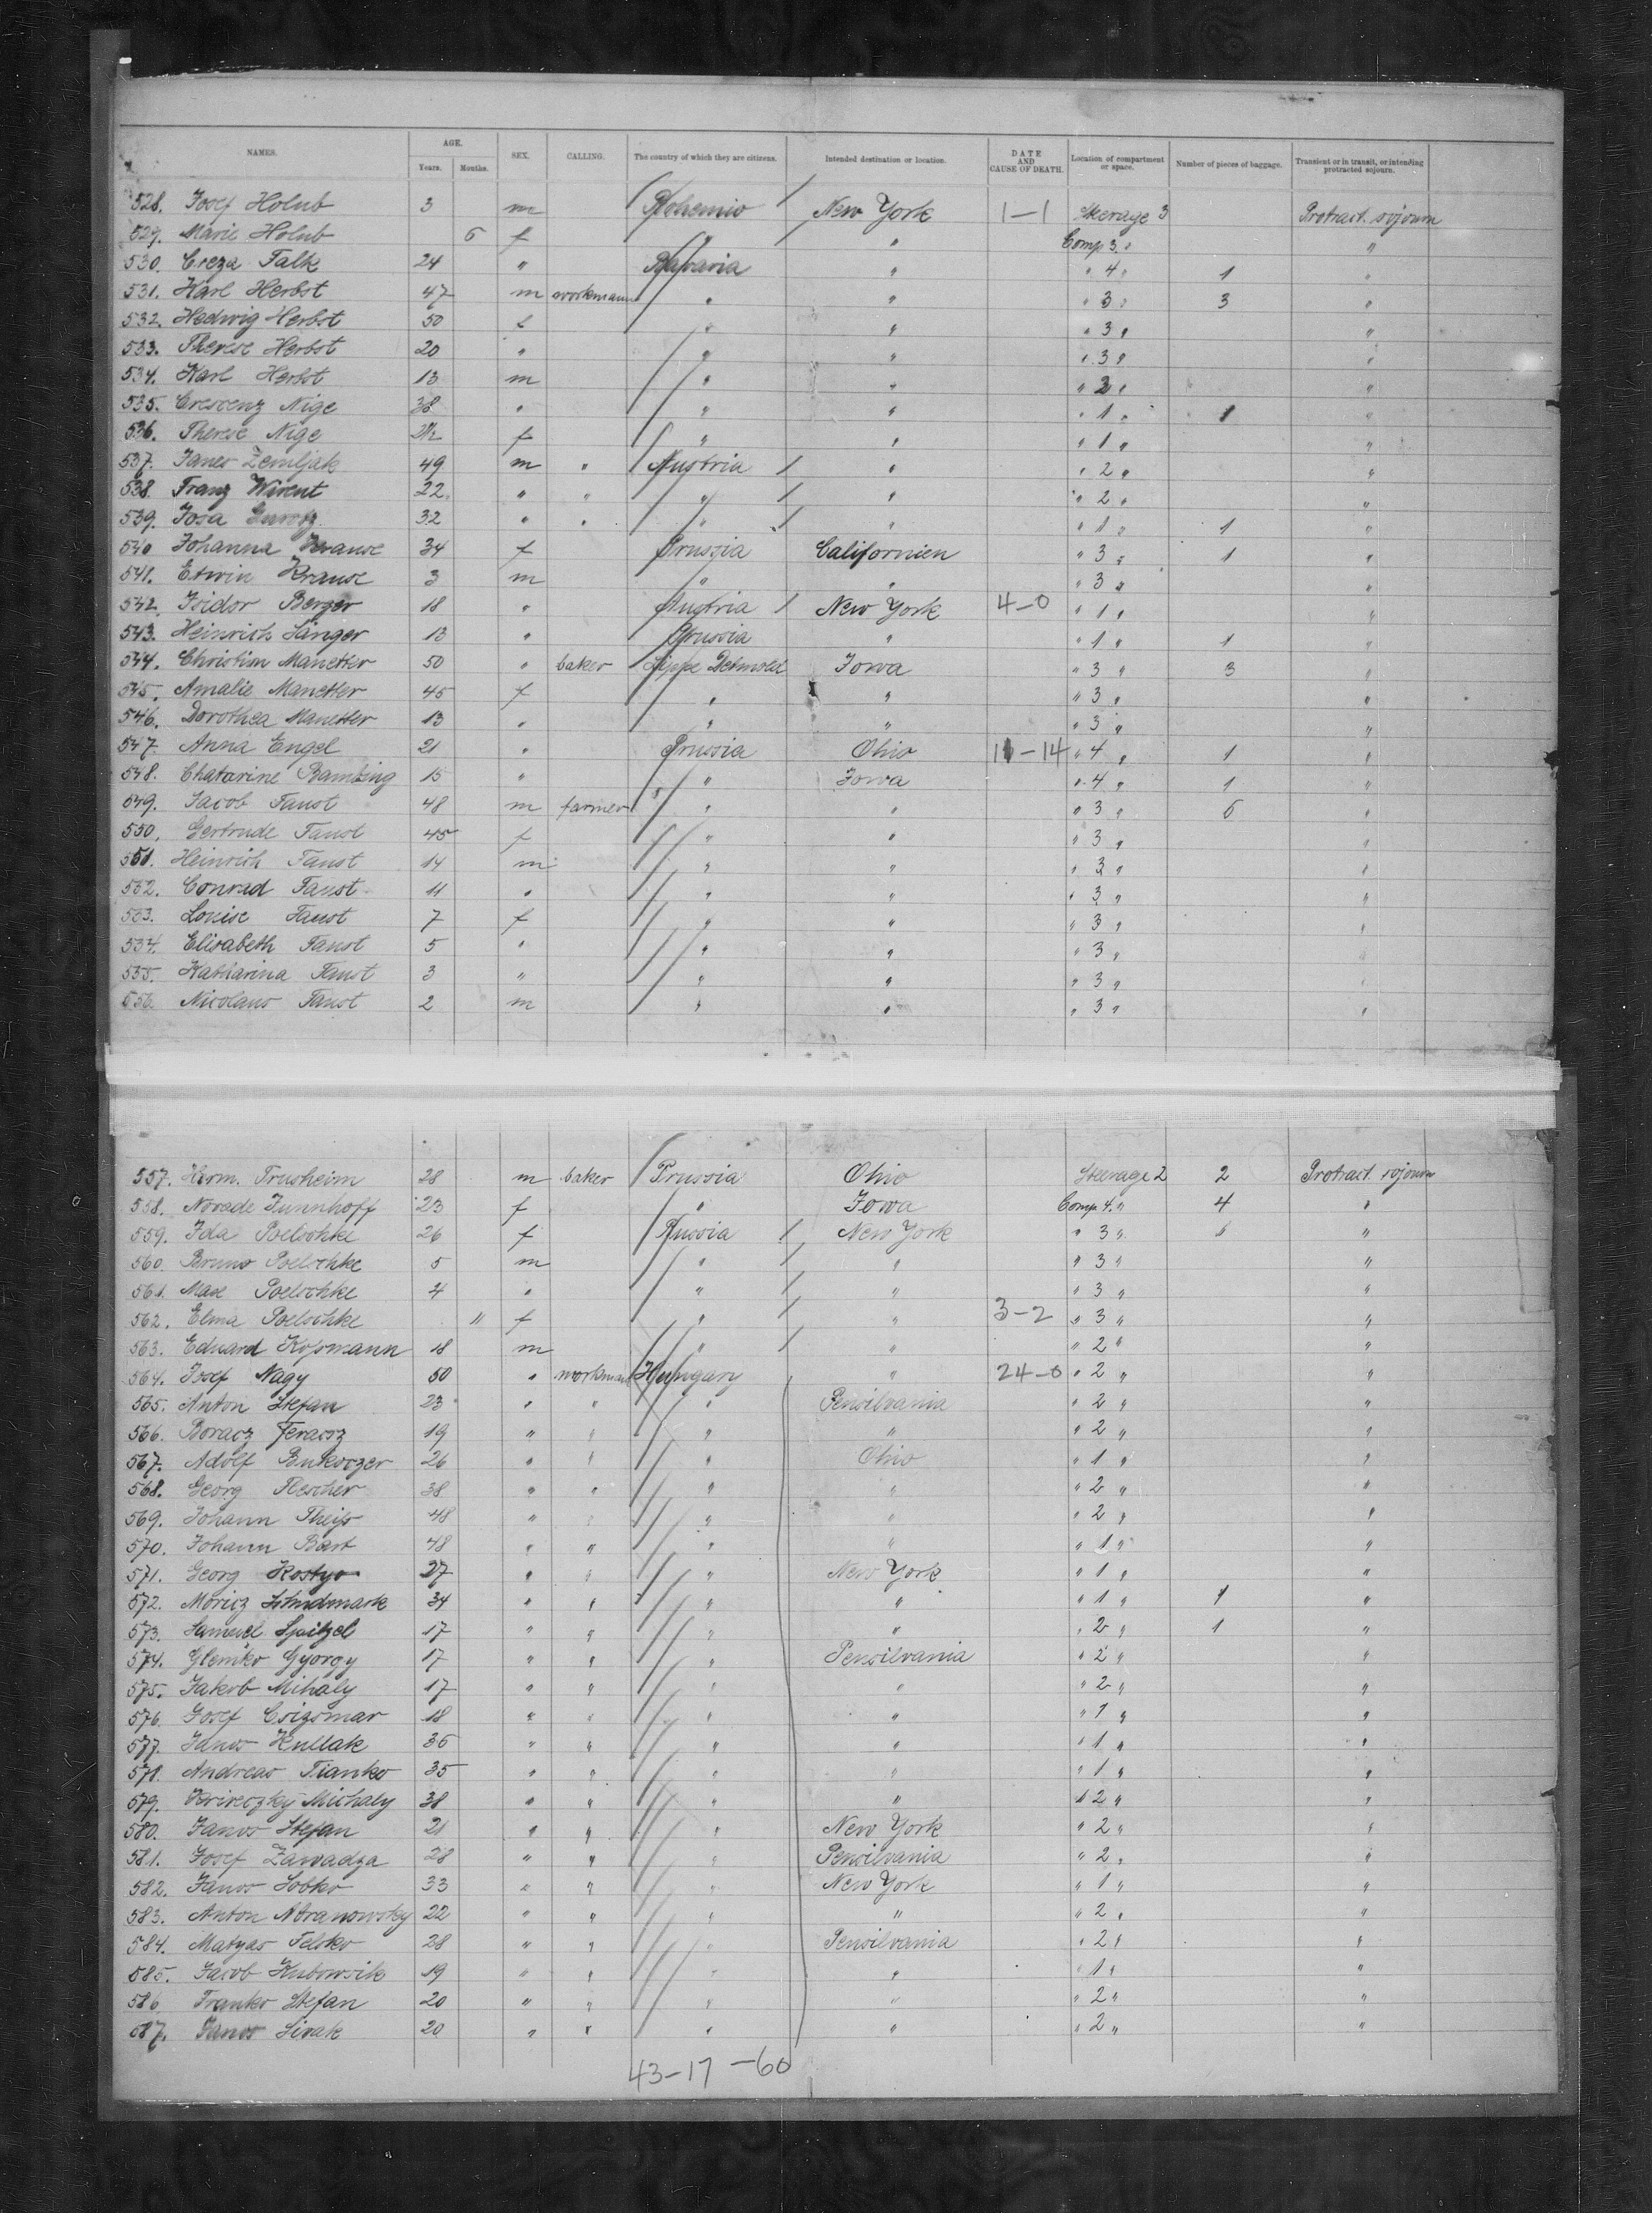 NAMES. AGE. SEX. CALLING. The country of which they are citizens. Intended destination or location. DATE AND CAUSE OF DEATH. Location of compartment or space. Number of pieces of baggage. Transient or in transit, or intending protracted sojourn.
Years. Months.
528. Josef Holub 3 m Bohemia / New York 1-1 Steerage 3 Protract. sojourn
529. Marie Holub 6 f " / " Comp. 3. " "
530. Creza Falk 24 " Bavaria " " 4 " 1 "
531. Karl Herbst 47 m workmann " " " 3 " 3 "
532. Hedwig Herbst 50 f " " " 3 " "
533. Therese Herbst 20 " " " " 3 " "
534. Karl Herbst 13 m " " " 3 " "
535. Crescenz Nige 38 " " " " 1 " 1 "
536. Therese Nige f " " " 1 " "
537. Janes Zemljak 49 m " Austria / " " 2 " "
538. Franz Wirent 22 " " " / " " 2 " "
539. Josa 32 " " " / " " 1 " 1 "
540 Johanna Krause 34 f Prussia Californien " 3 " 1 "
541. Erwin Krause 3 m " " " 3 " "
542. Isidor Berger 18 " Austria / New York 4-0 " 1 " "
543. Heinrich Sänger 13 " Prussia " " 1 " 1 "
544. Christian Manetter 50 " baker Lippe Detmold Iowa " 3 " 3 "
545. Amalie Manetter 45 f " " " 3 " "
546. Dorothea Manetter 13 " " " " 3 " "
547. Anna Engel 21 " Prussia Ohio 11-14 " 4 " 1 "
548. Chatarine Bambing 15 " " Iowa " 4 " 1 "
549. Jacob Faust 48 m farmer " " " 3 " 6 "
550. Gertrude Faust 45 f " " " 3 " "
551. Heinrich Faust 14 m " " " 3 " "
552. Conrad Faust 11 " " " " 3 " "
553. Louise Faust 7 f " " " 3 " "
554. Elisabeth Faust 5 " " " " 3 " "
555. Katharina Faust 3 " " " " 3 " "
556. Nicolaus Faust 2 m " " " 3 " "
557. Herm. Trusheim 28 m baker Prussia Ohio Steerage 2 2 Protract. sojourn
558. Junnhoff 23 f " Iowa Comp. 4. " 4 "
559. Ida Poelschke 26 f Russia / New York " 3 " "
560. Bruno Poelschke 5 m " / " " 3 " "
561. Max Poelschke 4 " " / " " 3 " "
562. Elma Poelschke " f " / " 3-2 " 3 " "
563. Eduard Koßmann 18 m " / " " 2 " "
564. Josef Nagy 50 " workmann Hungary " 24-0 " 2 " "
565. Anton Stefan 23 " " " Pensilvania " 2 " "
566. Boracz Feracsz 19 " " " " " 2 " "
567. Adolf Bukoczer 26 " " " Ohio " 1 " "
568. Georg Plescher 38 " " " " " 2 " "
569. Johann Theiß 48 " " " " " 2 " "
570. Johann Bart 48 " " " " " 1 " "
571. Georg Kostyo 27 " " " New York " 1 " "
572. Moricz 34 " " " " " 1 " 1 "
573. Samuel Spitzel 17 " " " " " 2 " 1 "
574. Glemko Gyorgy 17 " " " Pensilvania " 2 " "
575. Jakob Mihaly 17 " " " " " 2 " "
576. Josef Csizsmar 18 " " " " " 1 " "
577. Janos Kullak 36 " " " " " 1 " "
578. Andreas Tianko 35 " " " " " 1 " "
579. Kriveczky Michaly 38 " " " " " 2 " "
580. Janos Stefan 21 " " " New York " 2 " "
581. Josef Zawadza 28 " " " Pensilvania " 2 " "
582. Janos Sobko 33 " " " New York " 1 " "
583. Anton Abranowsky 22 " " " " " 2 " "
584. Matyas Felsko 28 " " " Pensilvania " 2 " "
585. Jacob Kubowsik 19 " " " " " 1 " "
586. Franko Stefan 20 " " " " " 2 " "
587. Janos Sivak 20 " " " " " 2 " "
43-17-60